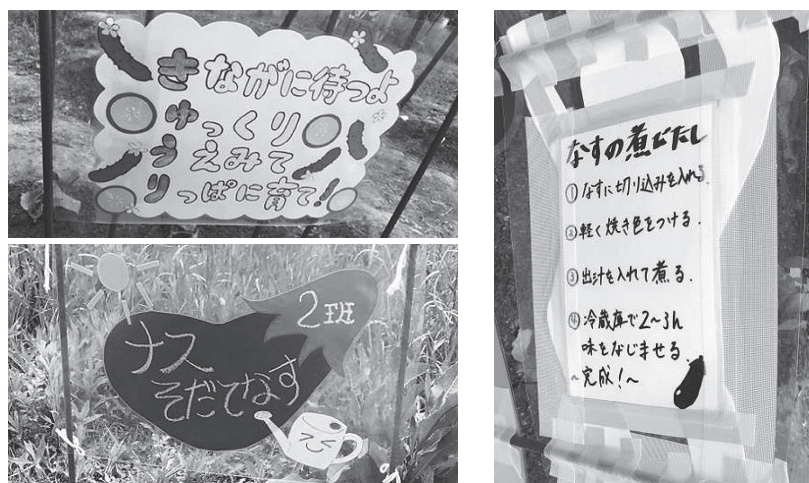 きながに待つよ
ゆっくり
うえみて
りっぱに育て!!
2班
ナス
そだてなす
なすの煮びたし
①なすに切り込みを入れる.
②軽く焼き色をつける.
③出汁を入れて煮る.
④冷蔵庫で2〜3h
味をなじませる.
〜完成!〜